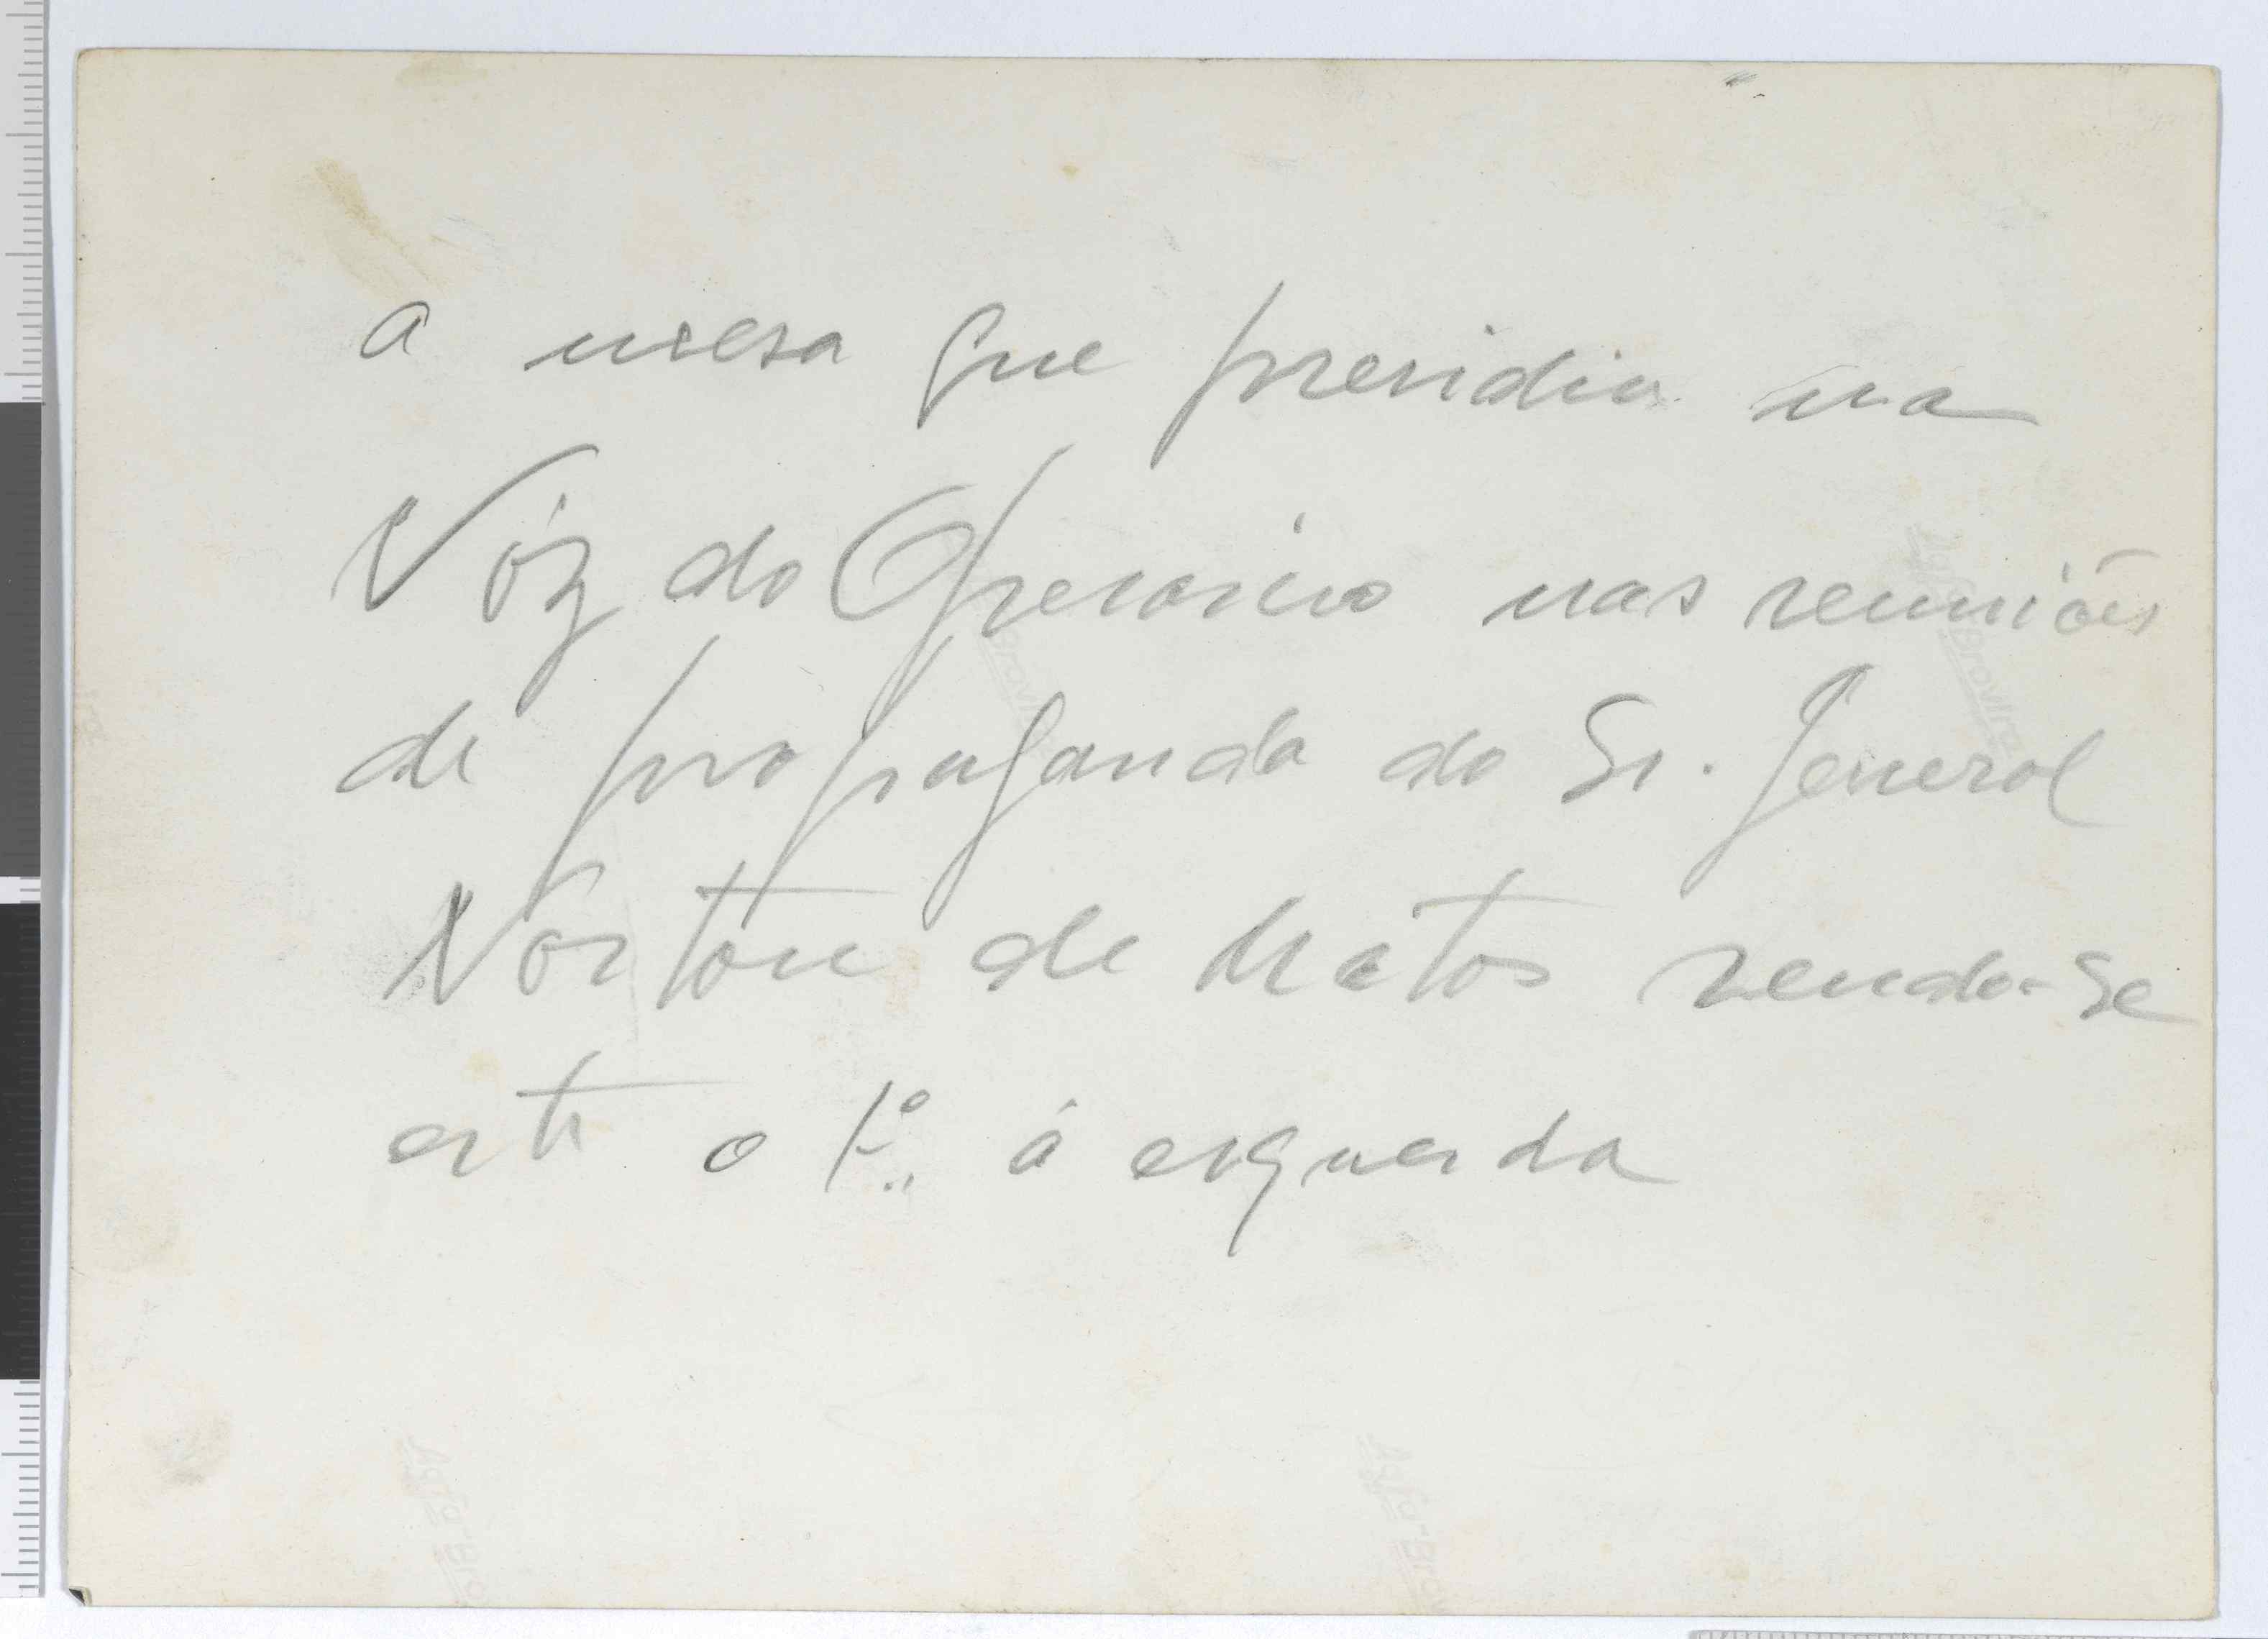 A mesa que presidiu na
Vóz do Operario nas reuniões
de propaganda do Sr. General
Norton de Matos vendo-se
este o 1º á esquerda
Agfa-Brovira